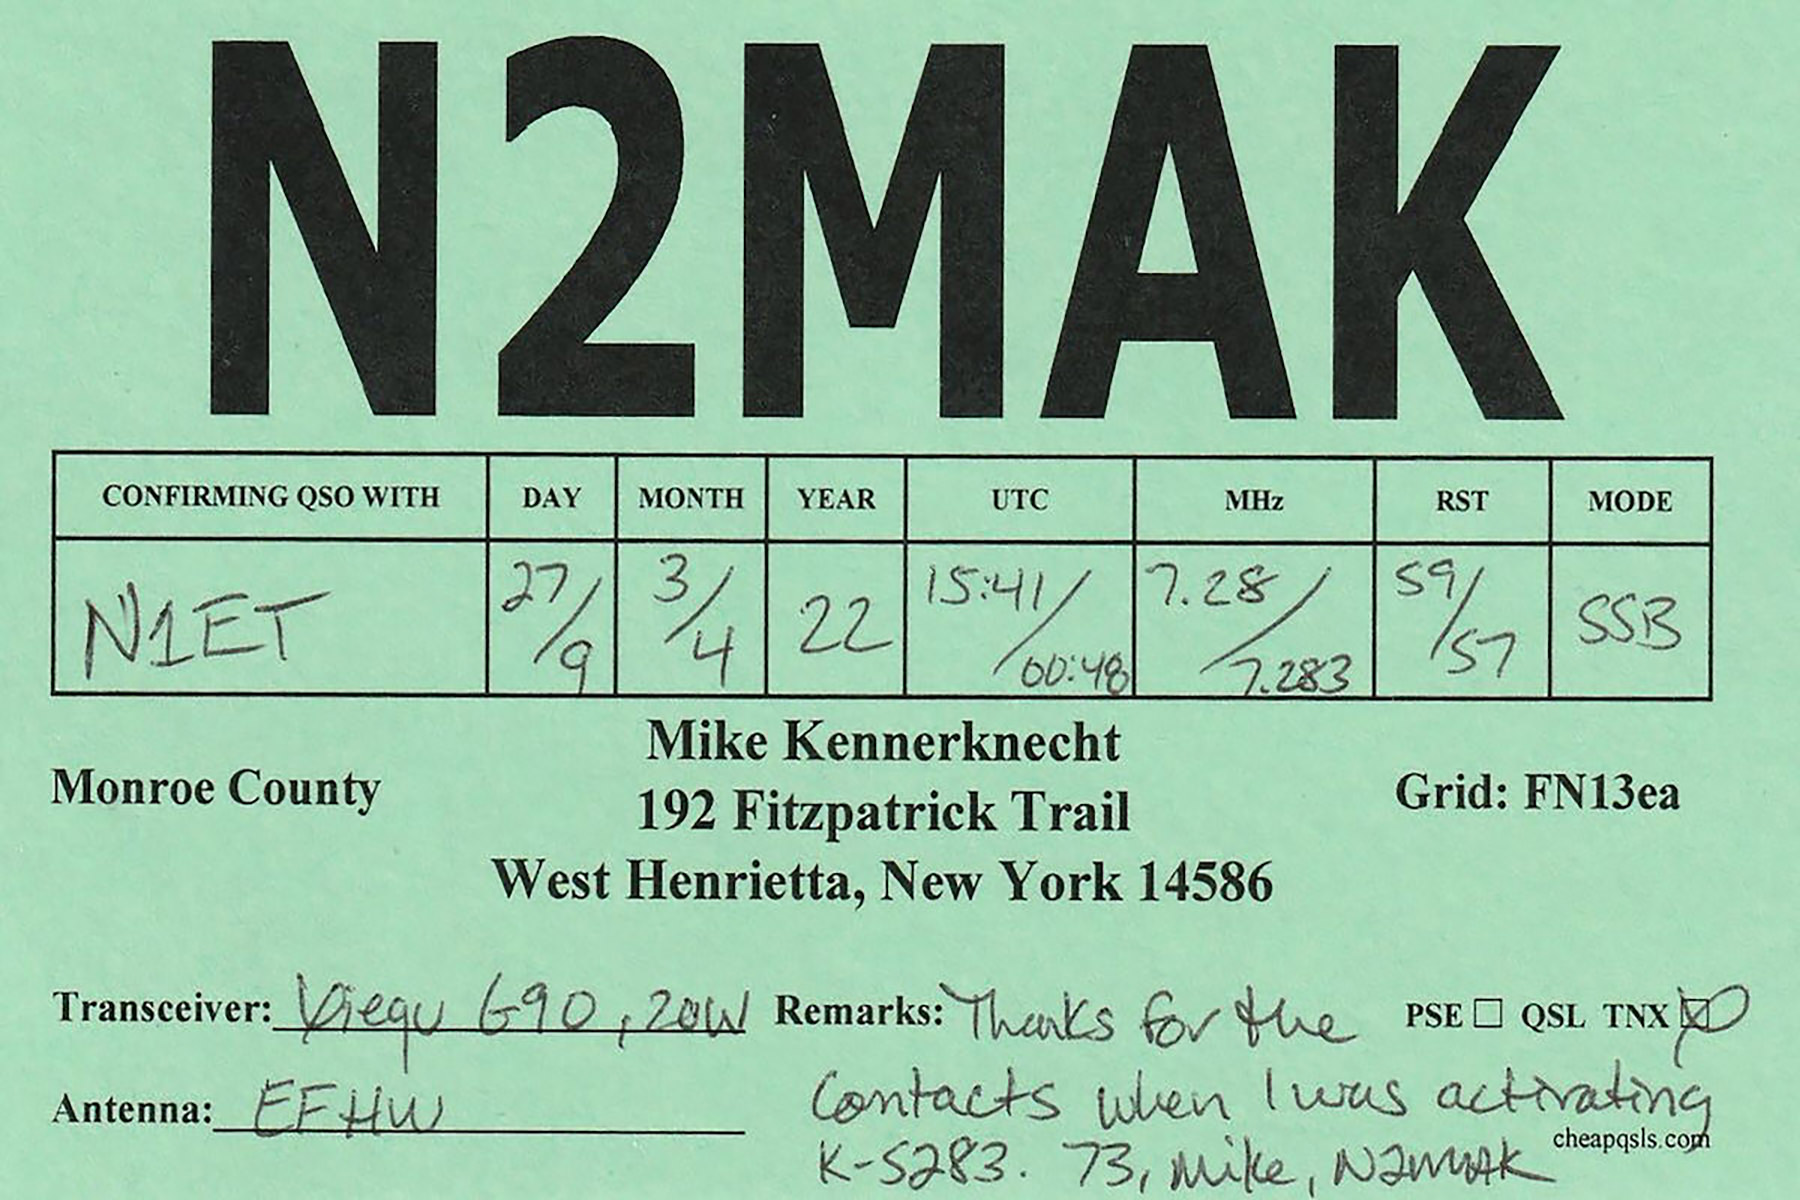 N2MAK
CONFIRMING QSO WITH DAY MONTH YEAR UTC MHz RST MODE
N1ET 27/9 3/4 22 15:41/00:48 7.28/7.283 59/57 SSB
Mike Kennerknecht
Monroe County 192 Fitzpatrick Trail Grid: FN13ea
West Henrietta, New York 14586
Transceiver: Xiegu G90, 20W Remarks: Thanks for the PSE ☐ QSL TNX ☒
Antenna: EFHW contacts when I was activating
cheapqsls.com
K-5283. 73, Mike, N2MAK